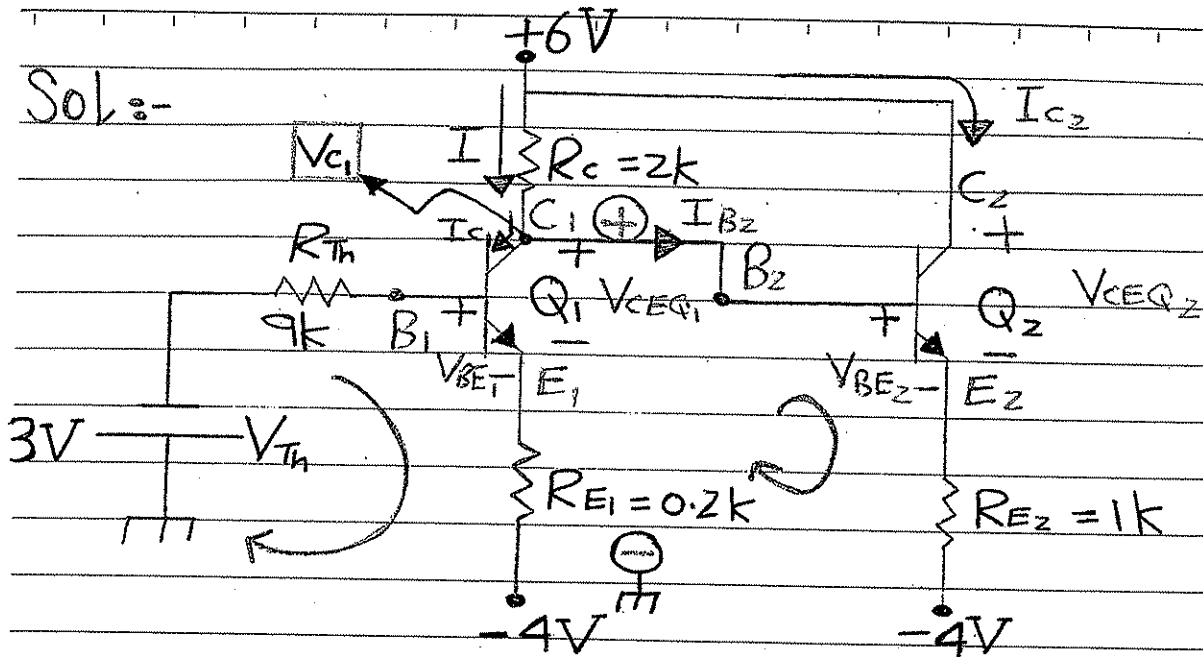 +6V
Sol :-
I
IC2
VC1
RC = 2k
C2
+
IC
C1
+
IB2
+
RTh
9k
B1
+
Q1
VCEQ1
-
B2
+
Q2
VCEQ2
-
VBE1 -
E1
VBE2 -
E2
3V
VTh
RE1 = 0.2k
RE2 = 1k
-
-4V
-4V